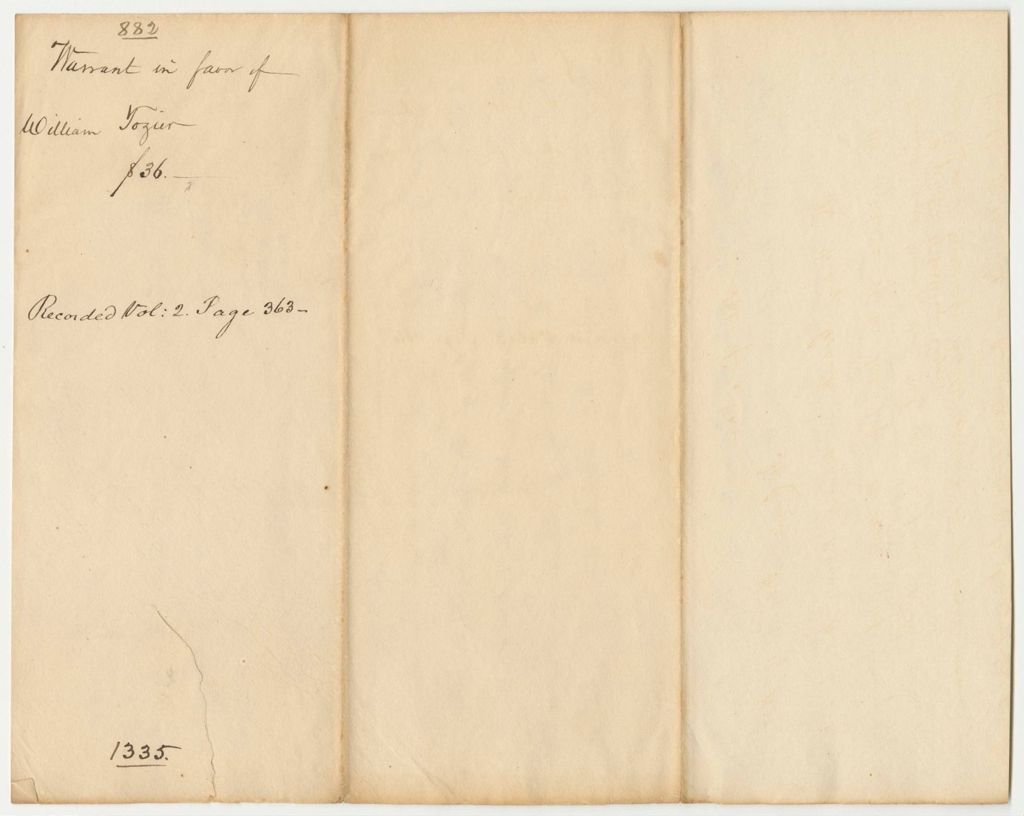 882
Warrant in favor of
William Tozier
$36.
Recorded Vol: 2. Page 363-
1335.